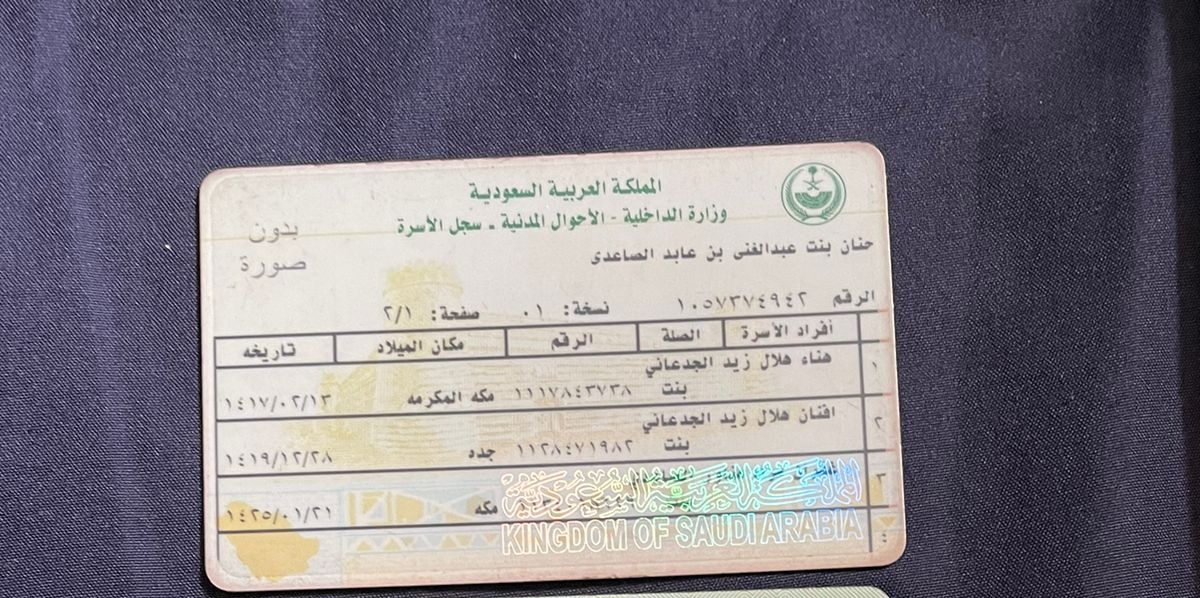 المملكة العربية السعودية
وزارة الداخلية - الأحوال المدنية - سجل الأسرة
بدون
صورة
حنان بنت عبدالغنى بن عابد الصاعدى
الرقم ١٠٥٧٣٧٤٩٤٢ نسخة: ٠١ صفحة: ٢/١
أفراد الأسرة الصلة الرقم مكان الميلاد تاريخه
١ هناء هلال زيد الجدعاني
بنت ١١١٧٨٤٣٧٣٨ مكه المكرمه ١٤١٧/٠٢/١٣
٢ افنان هلال زيد الجدعاني
بنت ١١٢٨٤٧١٩٨٢ جدد ١٤١٩/١٢/٢٨
٣
مكه ١٤٢٥/٠١/٢١
المملكة العربية السعودية
KINGDOM OF SAUDI ARABIA
٤